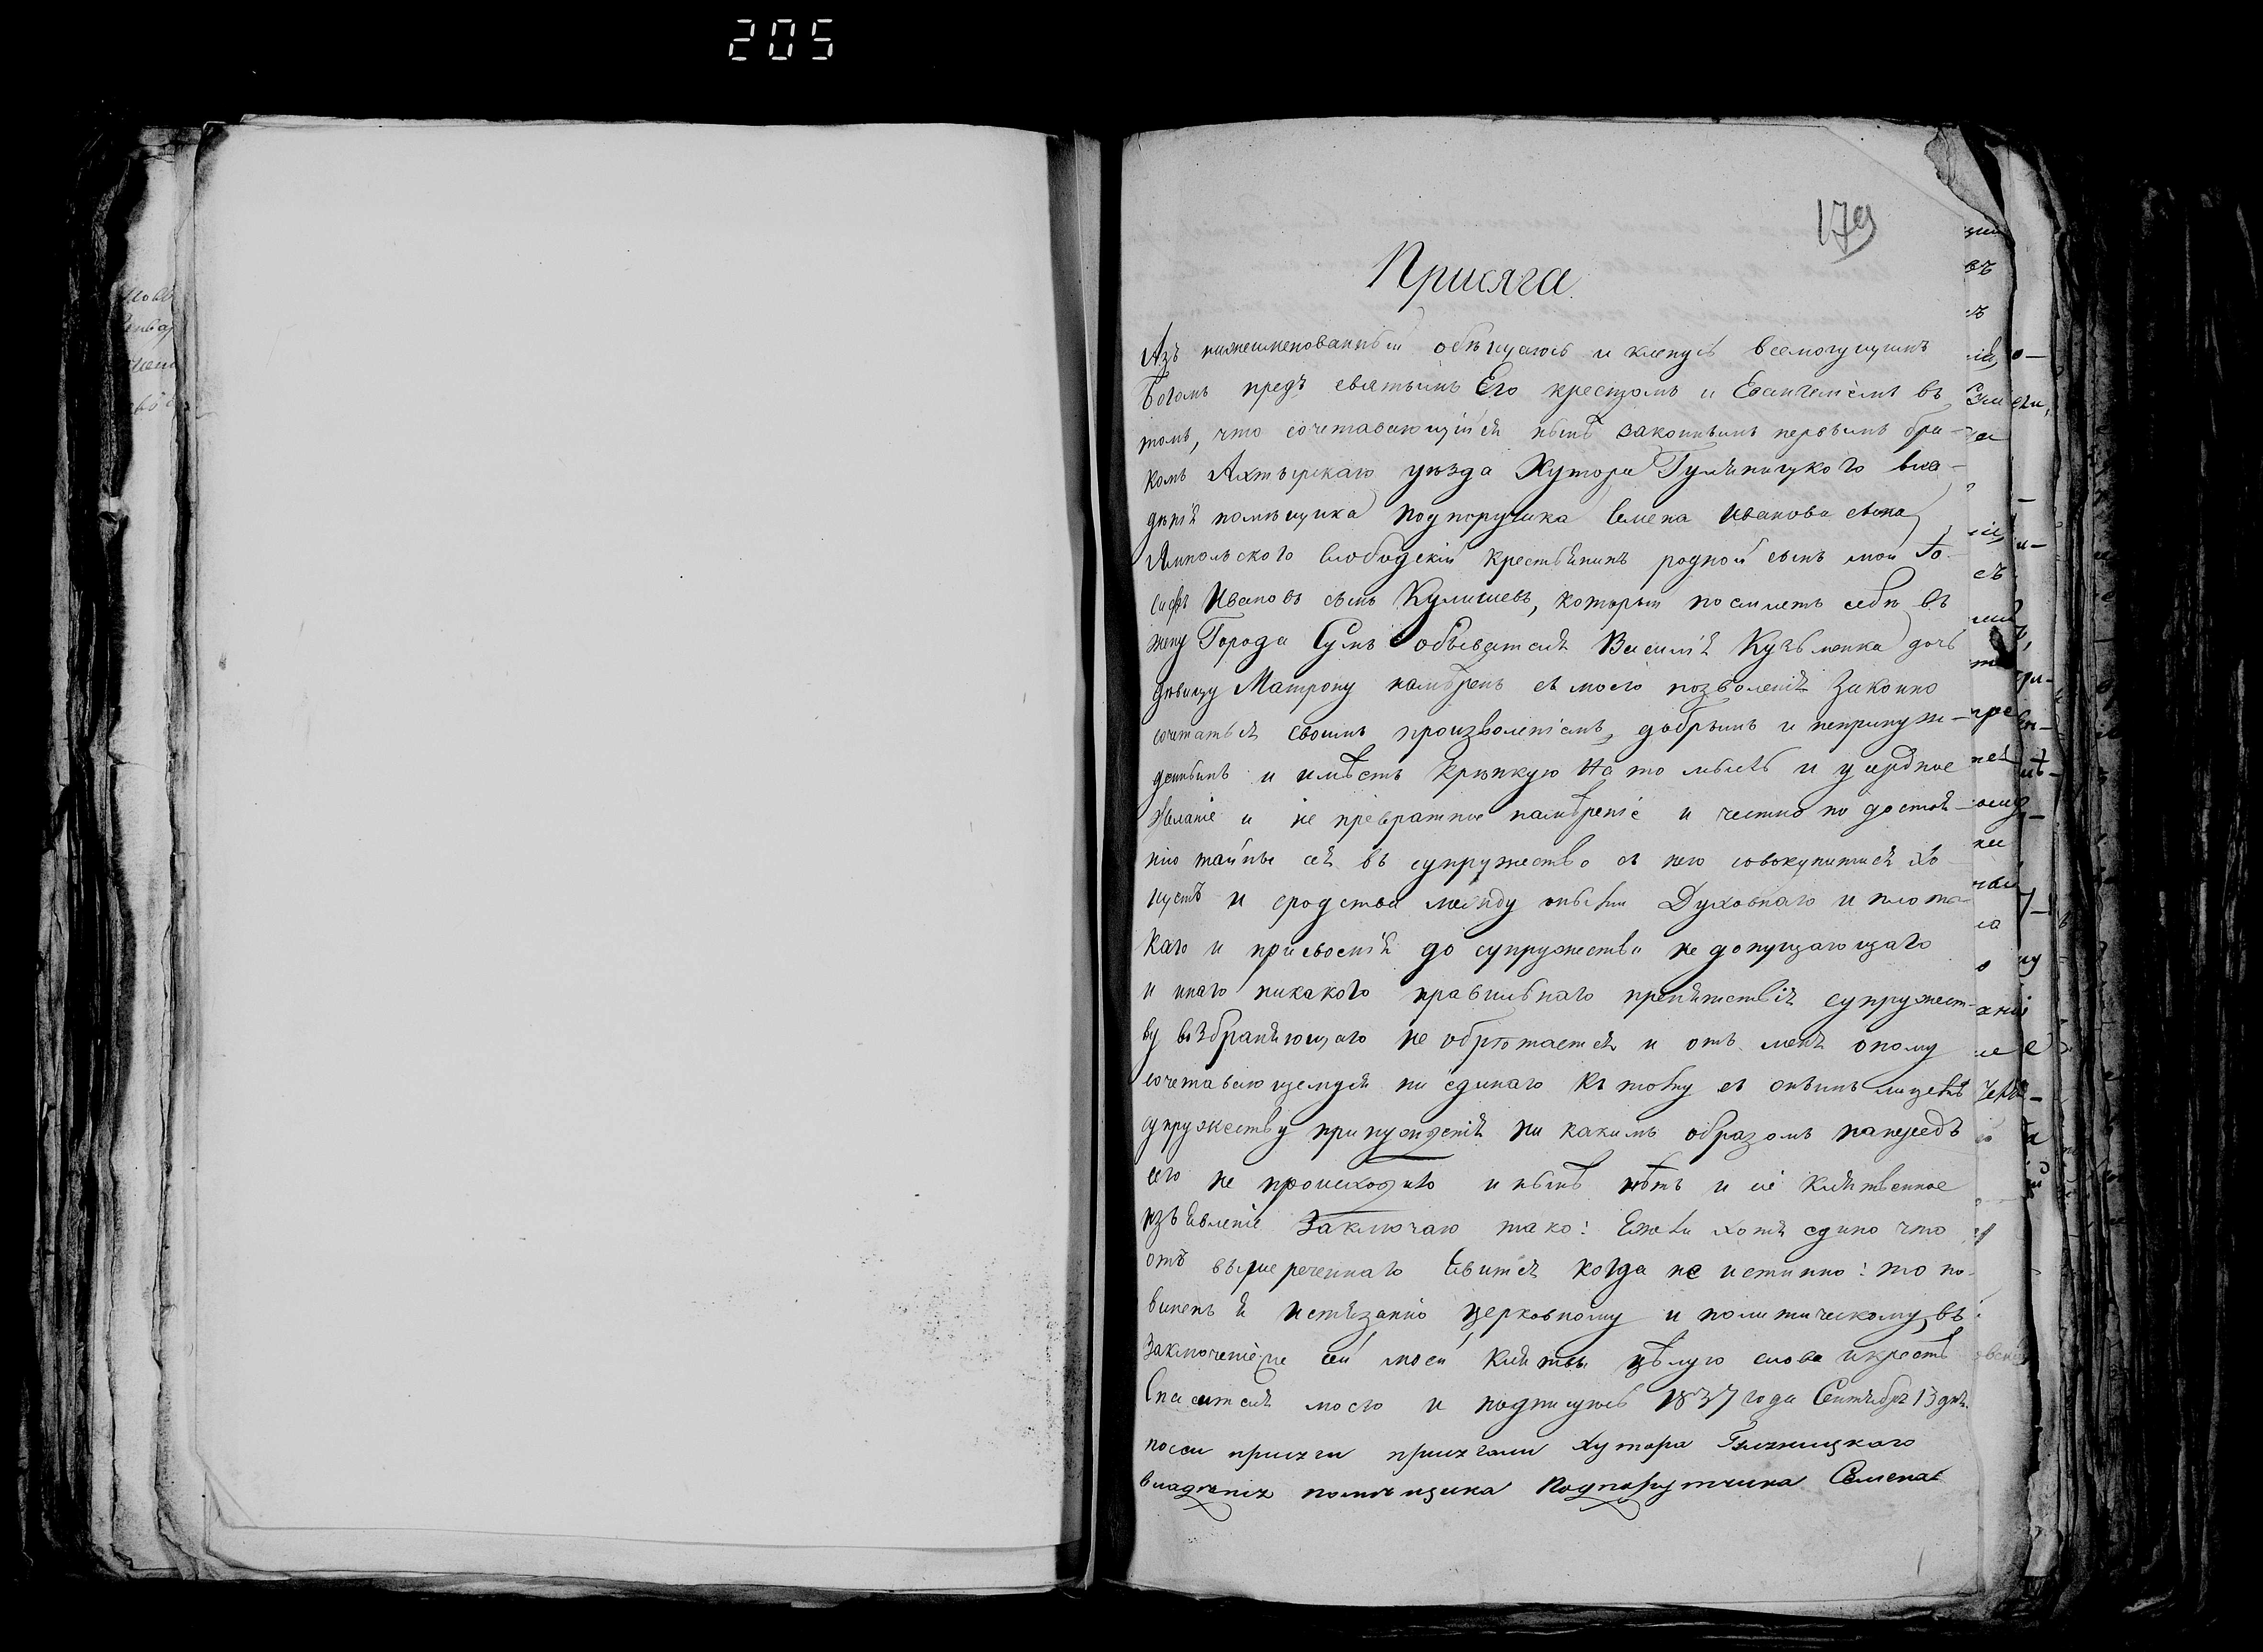 205
179
Присяга
Азъ нижеименованный обѣщаюсь и кленусь всемогущимъ
Богомъ предъ святымъ Его крестомъ и Евангелiемъ въ
томъ, что сочетавающiйся нынѣ законнымъ первымъ бра-
комъ Ахтырскаго уѣзда Хутора вла-
дѣнiя помѣщика подпоручика Семена Иванова сына
Ямпольского слободскiй крестьянинъ родной сынъ мой Iо-
сифъ Ивановъ сынъ Кулишевъ, который поемлетъ себѣ въ
жену Города Сумъ обывателя Василiя Кузьменка дочь
дѣвицу Матрону намѣренъ съ моего позволенiя законно
сочетаться своимъ произволенiемъ, добрымъ и непринуж-
деннымъ и имѣетъ крѣпкую на то мысль и усердное
желанiе и не превратное намѣренiе и честно по достоя-
нiю тайны сея въ супружество съ нею совокупитися хо-
щетъ и сродства между ними Духовнаго и плотс-
каго и присвоенiя до супружества не допущающаго
и инаго никакого правильнаго препятствiя супружест-
ву возбраняющаго не обрѣтается и отъ меня оному
сочетавающемуся ни единаго къ товму съ онымъ лицемъ
супружеству принужденiя ни какимъ образомъ напредъ
сего не происходило и нынѣ нѣтъ и сiе клятвенное
изъявленiе Заключаю тако: Ежели хотя едино что
отъ вышереченнаго явится когда не истинно: то по-
виненъ я истязанiю церковному и политическому, въ
заключенiе же сей моей клятвы цѣлую слова и крестъ
Спасителя моего и подпишуюсь 1837 года Сентября 13 дня.
по сей присяги присягали Хутора
владѣнiя помѣщика Подпорутчика Семена